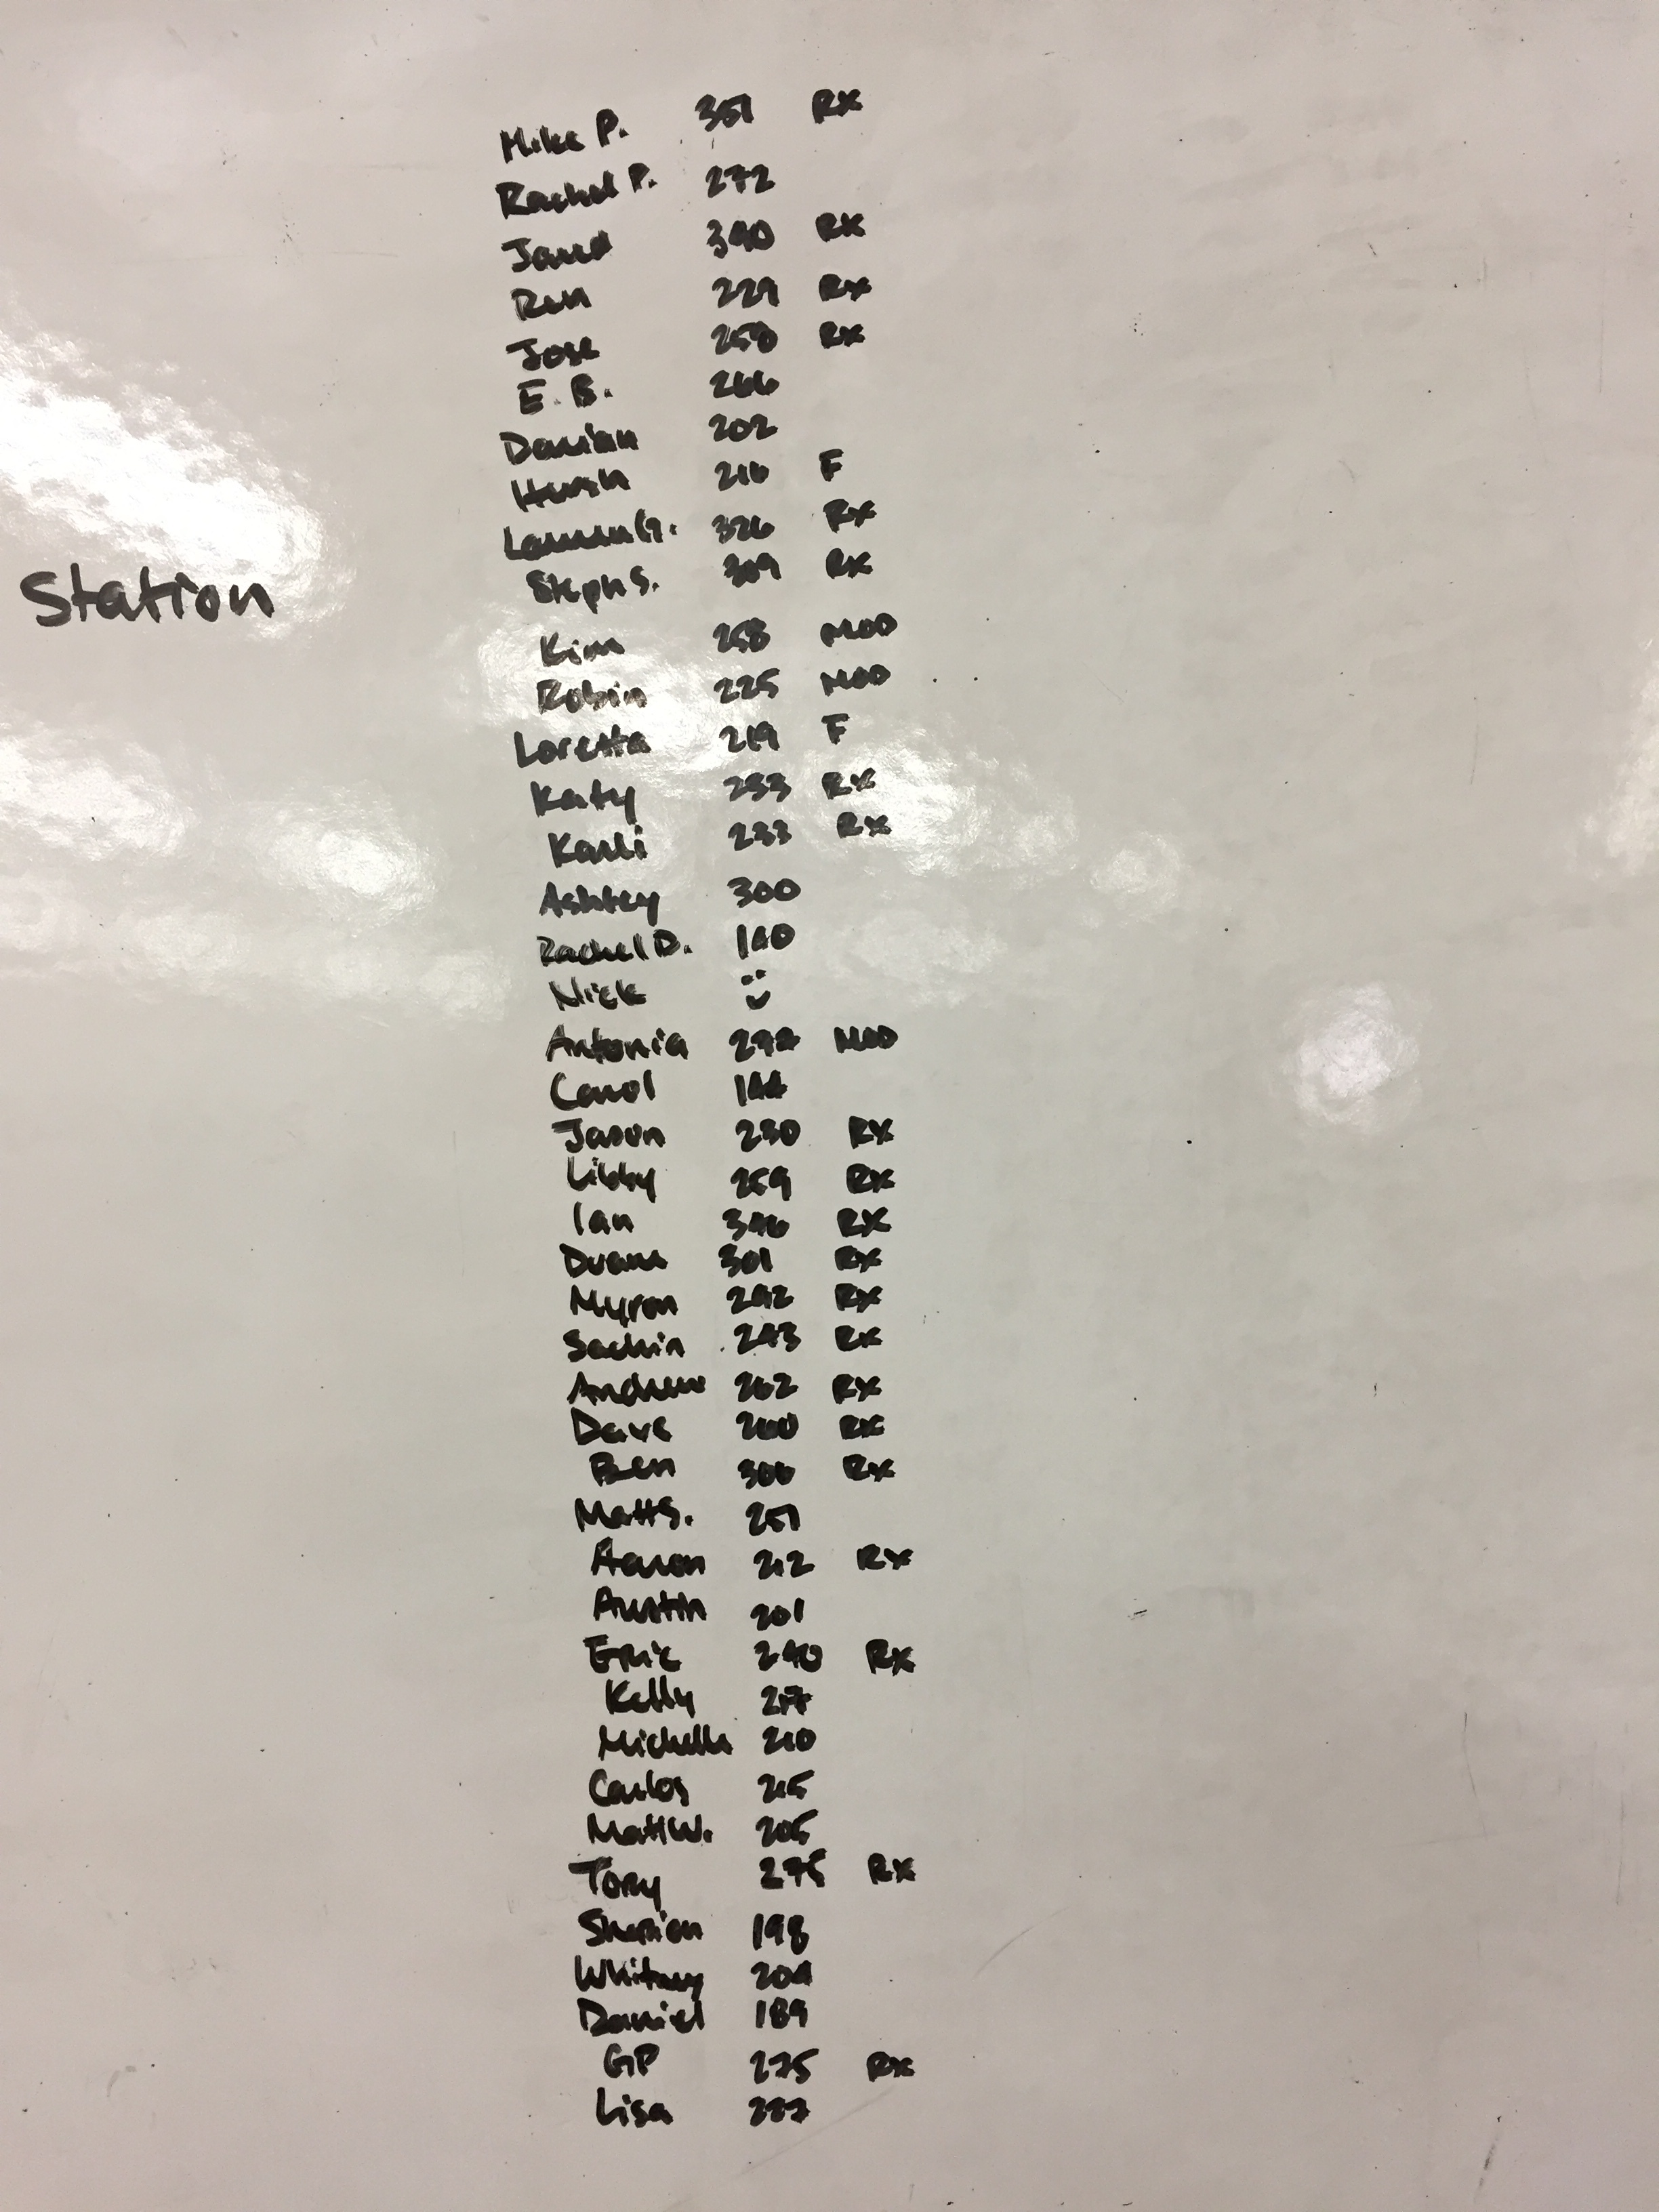 Mike P. 351 RX
Rachel P. 272
Jared 340 RX
Ren 229 RX
Jose 250 RX
E.B. 266
Damian 202
Hersh 216 F
Lauren G. 326 RX
Steph S. 309 RX
Station
Kim 258 MOD
Robin 225 MOD
Loretta 219 F
Katy 253 RX
Karli 233 RX
Ashley 300
Rachel D. 160
Nick
Antonia MOD
Carol 144
Jason 230 RX
Libby 259 RX
Ian 346 RX
Duane 301 RX
Myron 242 RX
Sachin 243 RX
Andrew 262 RX
Dave 260 RX
Ben 306 RX
Matt S. 251
Aaron 212 RX
Austin 201
Eric 240 RX
Kelly 217
Michelle 210
Carlos 215
Matt W. 205
Tory 275 RX
198
Whitney 204
Daniel 189
GP 275 RX
Lisa 227